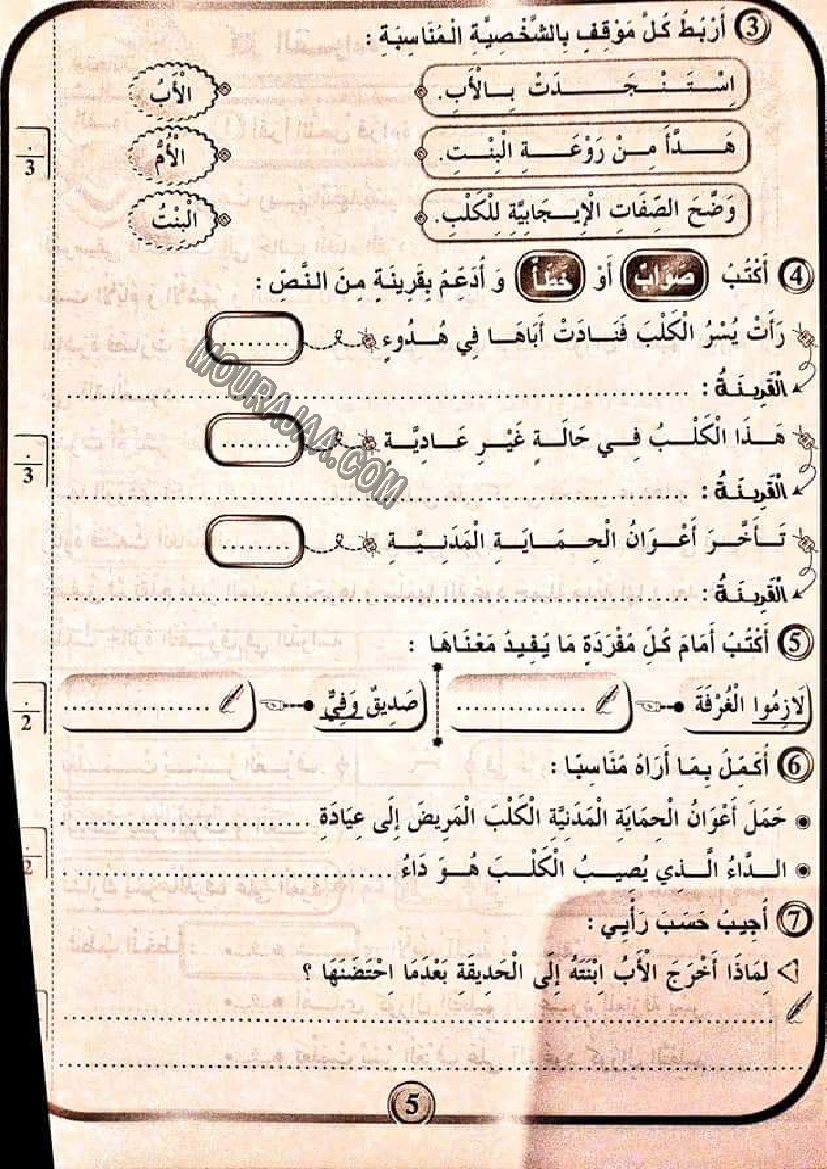 ③ أَرْبُطُ كُلَّ مَوْقِفٍ بِالشَّخْصِيَّةِ الْمُنَاسِبَةِ :
اِسْتَنْجَدَتْ بِالْأَبِ. الْأَبُ
هَدَّأَ مِنْ رَوْعَةِ الْبِنْتِ. الْأُمُّ
وَضَّحَ الصِّفَاتِ الْإِيجَابِيَّةِ لِلْكَلْبِ. الْبِنْتُ
3
④ أَكْتُبُ صَوَابٌ أَوْ خَطَأٌ وَ أَدْعَمُ بِقَرِينَةٍ مِنَ النَّصِّ :
رَأَتْ يُسْرُ الْكَلْبَ فَنَادَتْ أَبَاهَا فِي هُدُوءٍ .........
الْقَرِينَةُ : ..............................
هَذَا الْكَلْبُ فِي حَالَةٍ غَيْرِ عَادِيَّةٍ .........
3
الْقَرِينَةُ : ..............................
تَأَخَّرَ أَعْوَانُ الْحِمَايَةِ الْمَدَنِيَّةِ .........
الْقَرِينَةُ : ..............................
⑤ أَكْتُبُ أَمَامَ كُلِّ مُفْرَدَةٍ مَا يُفِيدُ مَعْنَاهَا :
لَازِمُوا الْغُرْفَةَ ............... صَدِيقٌ وَفِيٌّ ...............
2
⑥ أُكَمِّلُ بِمَا أَرَاهُ مُنَاسِبًا :
حَمَلَ أَعْوَانُ الْحِمَايَةِ الْمَدَنِيَّةِ الْكَلْبَ الْمَرِيضَ إِلَى عِيَادَةِ ..............................
الدَّاءُ الَّذِي يُصِيبُ الْكَلْبَ هُوَ دَاءُ .............................. .
2
⑦ أُجِيبُ حَسَبَ رَأْيِي :
لِمَاذَا أَخْرَجَ الْأَبُ ابْنَتَهُ إِلَى الْحَدِيقَةِ بَعْدَمَا احْتَضَنَهَا ؟
..............................
..............................
5
MOURAJAA.COM